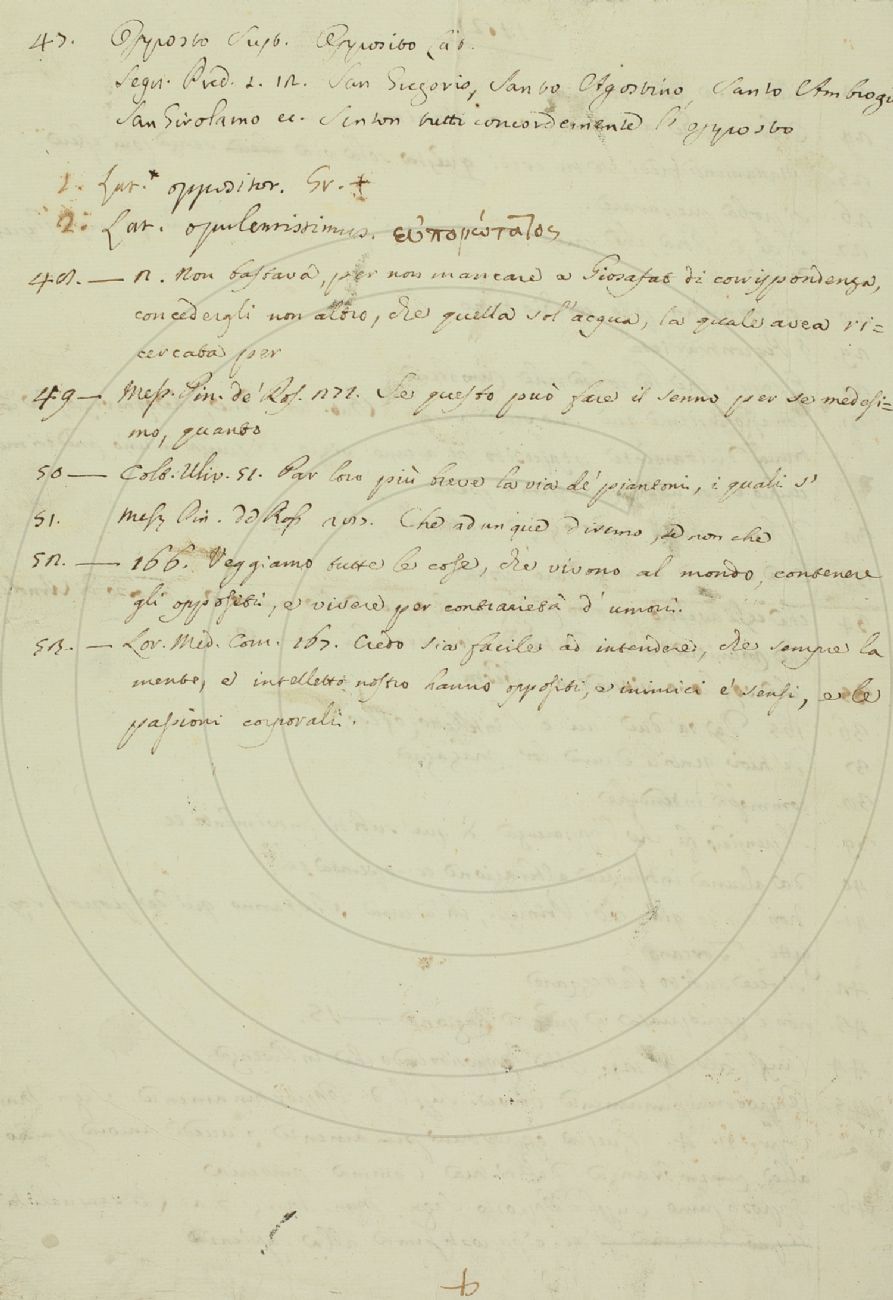 47. Opposto Sust. Opposito Lat.
Segn. Pred. 2. 12. San Gregorio, Santo Agostino, Santo Ambrogi
San Girolamo ec. tutti concordemente l'opposto
1. Lat. * oppositor. Gr. +
2. Lat. opulentissimus. εὐπορώτατος
48. — 12. Non bastava, per non mancare a Giosafat di corrispondenza,
concedergli non altro, che quella sol' acqua, la quale avea ri=
cercata per
49 — Mess. Cin. de' Ros. Se questo può fare il senno per se medesi=
mo, quanto
50 — Colt. Uliv. 51. Par loro più breve la via de' piantoni, i quali s'
51. Mess. Cin. Che adunque diremo, se non che
52. — 166. Veggiamo tutte le cose, che vivono al mondo, contenere
gli oppositi, e vivere per contrarietà d' umori.
53. — Lor. Med. Com. 167. Credo sia facile ad intendere, che sempre la
mente, e intelletto nostro hanno oppositi, e inimici e' sensi, e le
passioni corporali.